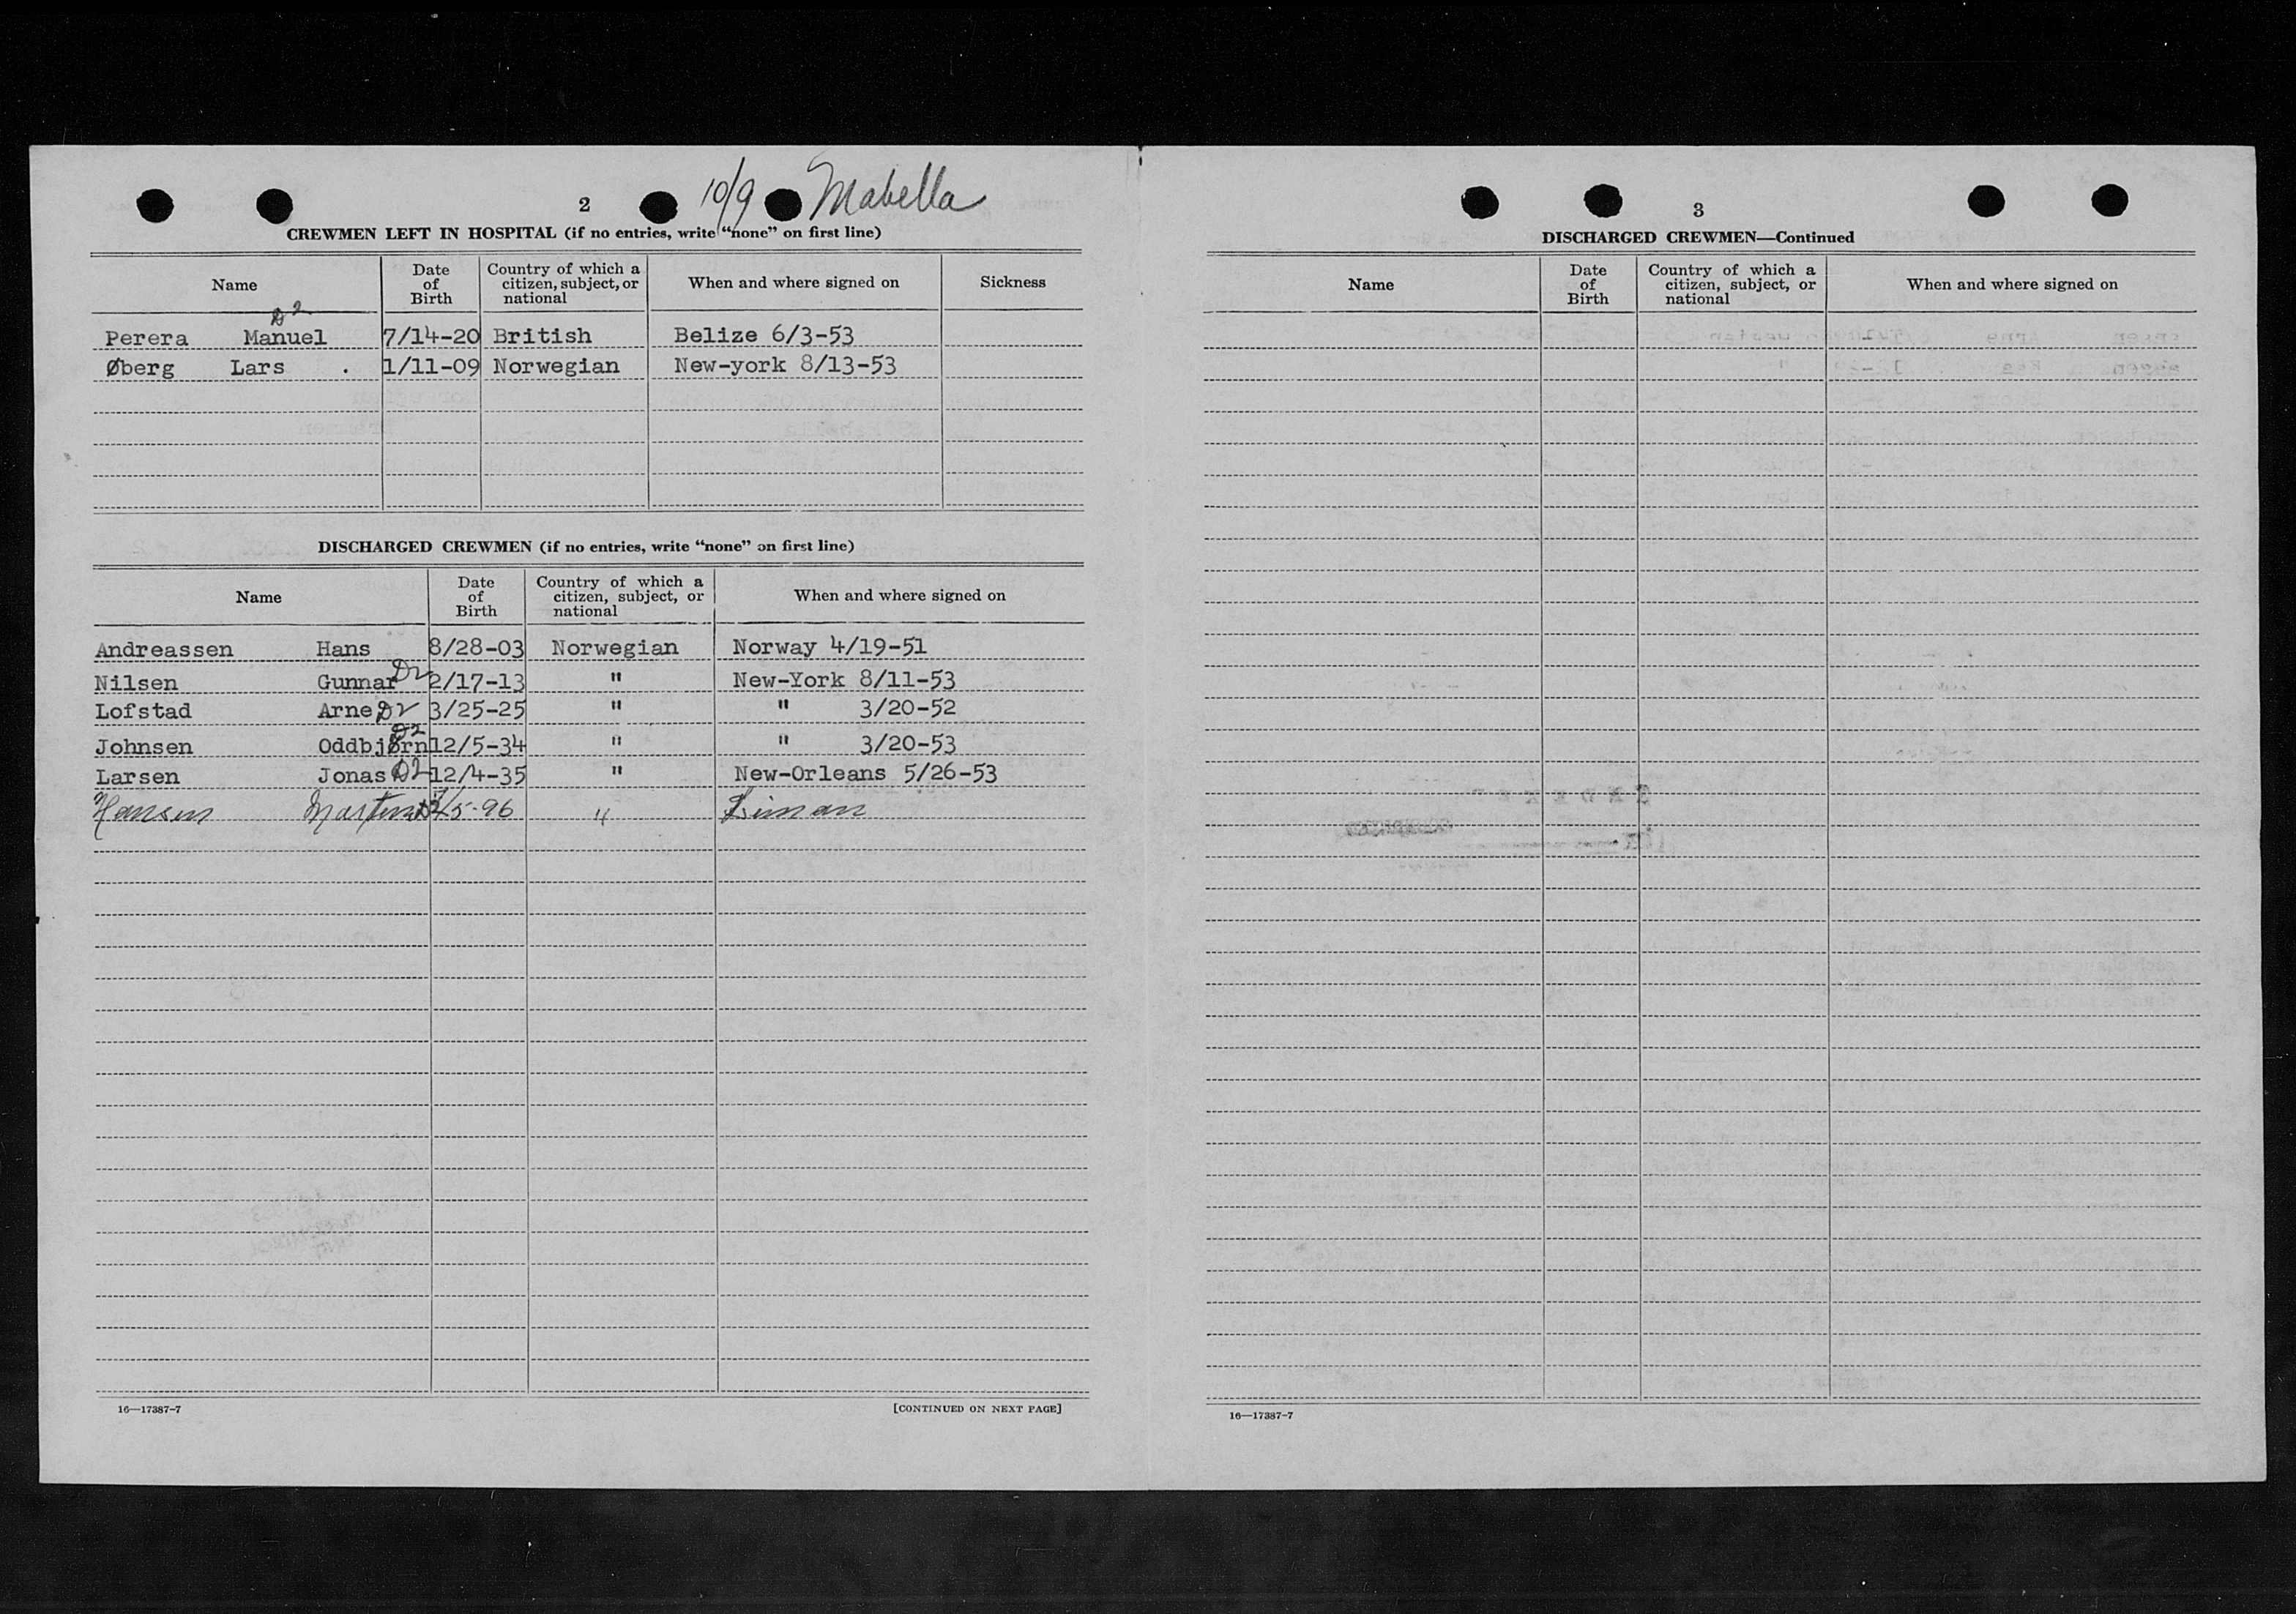 10/9 Mabella
2
CREWMEN LEFT IN HOSPITAL (if no entries, write “none” on first line)
Name Date of Birth Country of which a citizen, subject, or national When and where signed on Sickness
D2
Perera Manuel 7/14-20 British Belize 6/3-53
Øberg Lars . 1/11-09 Norwegian New-york 8/13-53
DISCHARGED CREWMEN (if no entries, write “none” on first line)
Name Date of Birth Country of which a citizen, subject, or national When and where signed on
Andreassen Hans 8/28-03 Norwegian Norway 4/19-51
Nilsen Gunnar D2 2/17-13 " New-York 8/11-53
Lofstad Arne D2 3/25-25 " " 3/20-52
Johnsen Oddbjørn D2 12/5-34 " " 3/20-53
Larsen Jonas D2 12/4-35 " New-Orleans 5/26-53
Hansen 5-96 "
16—17387-7 [CONTINUED ON NEXT PAGE]
3
DISCHARGED CREWMEN—Continued
Name Date of Birth Country of which a citizen, subject, or national When and where signed on
16—17387-7